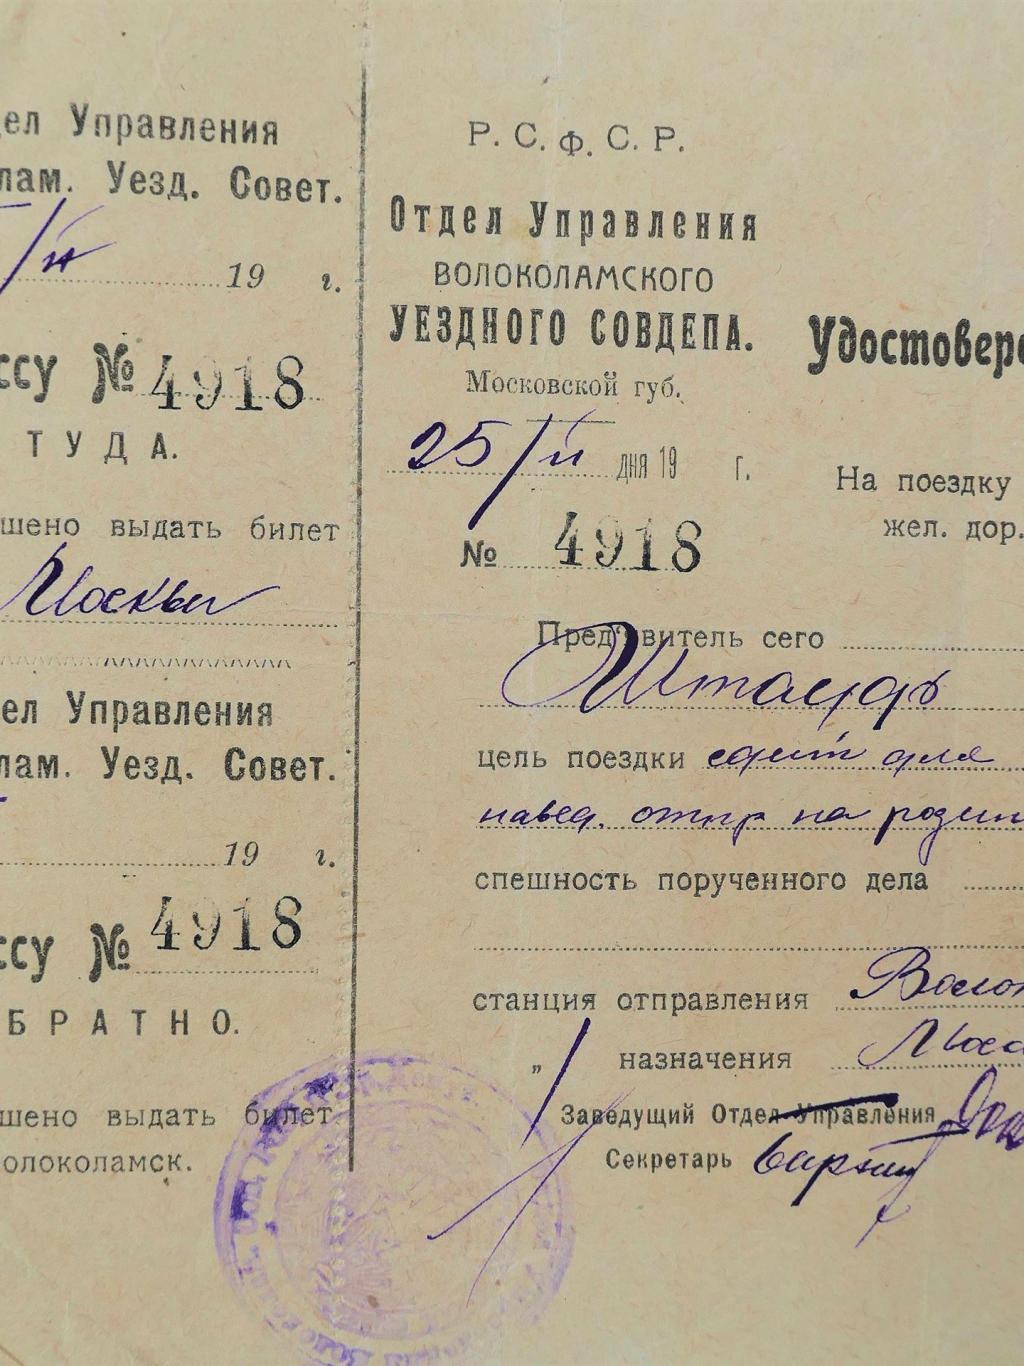 дел Управления
лам. Уезд. Совет.
/II 19 г.
ссу № 4918
ТУДА.
шено выдать билет
Москвы
ел Управления
лам. Уезд. Совет.
19 г.
ссу № 4918
БРАТНО.
шено выдать билет
олоколамск.
Р. С. Ф. С. Р.
Отдел Управления
ВОЛОКОЛАМСКОГО
УЕЗДНОГО СОВДЕПА.
Московской губ.
25/II дня 19 г.
№ 4918
Удостовере
На поездку
жел. дор.
Пред'явитель сего
цель поездки для
на
спешность порученного дела
станция отправления Волок
„ назначения
Заведущий Отдел Управления
Секретарь